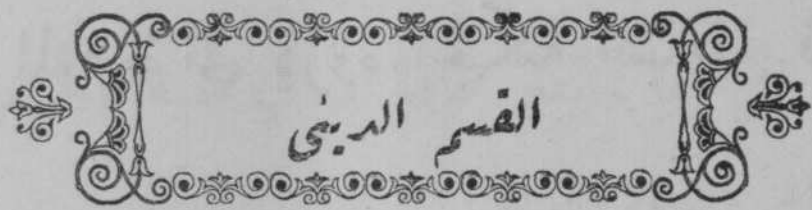 القسم الديني